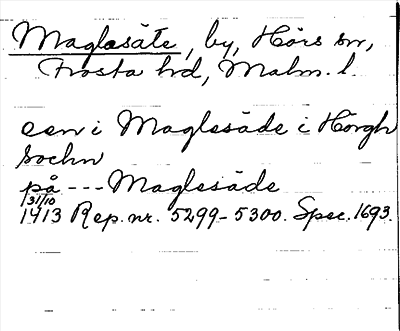 Maglasäte, by, Hörs sn,
Frosta hd, Malm. l.
een i Maglesäde i Hörgh
sochn
på --- Maglesäde
31/10
1413 Rep. nr. 5299-5300. Spec. 1693.